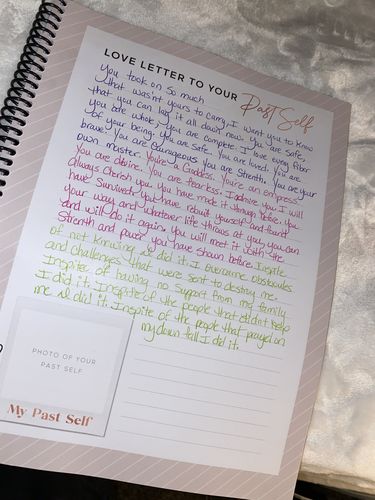 LOVE LETTER TO YOUR Past Self
You took on so much
that wasn't yours to carry, I want you to know
that you can lay it all down now. You are safe,
you are whole, you are complete. I love every fiber
of your being. You are safe. You are loved. You are
brave. You are courageous. You are strenth. You are your
own master. You're a Goddess. You're an empress.
You are divine. You are fearless. I admire you, I will
always cherish you. You have made it through before. You
have survived, you have rebuilt yourself and found
your way and whatever life throws at you, you can
and will do it again. You will meet it with the
Strenth and power you have shown before. Inspite
of not knowing I overcame obstacles
and challenges that were sent to destroy me.
Inspite of having no support from my family
I did it. Inspite of the people that didn't help
me I did it. Inspite of the people that prayed on
my down fall I did it.
PHOTO OF YOUR
PAST SELF
My Past Self